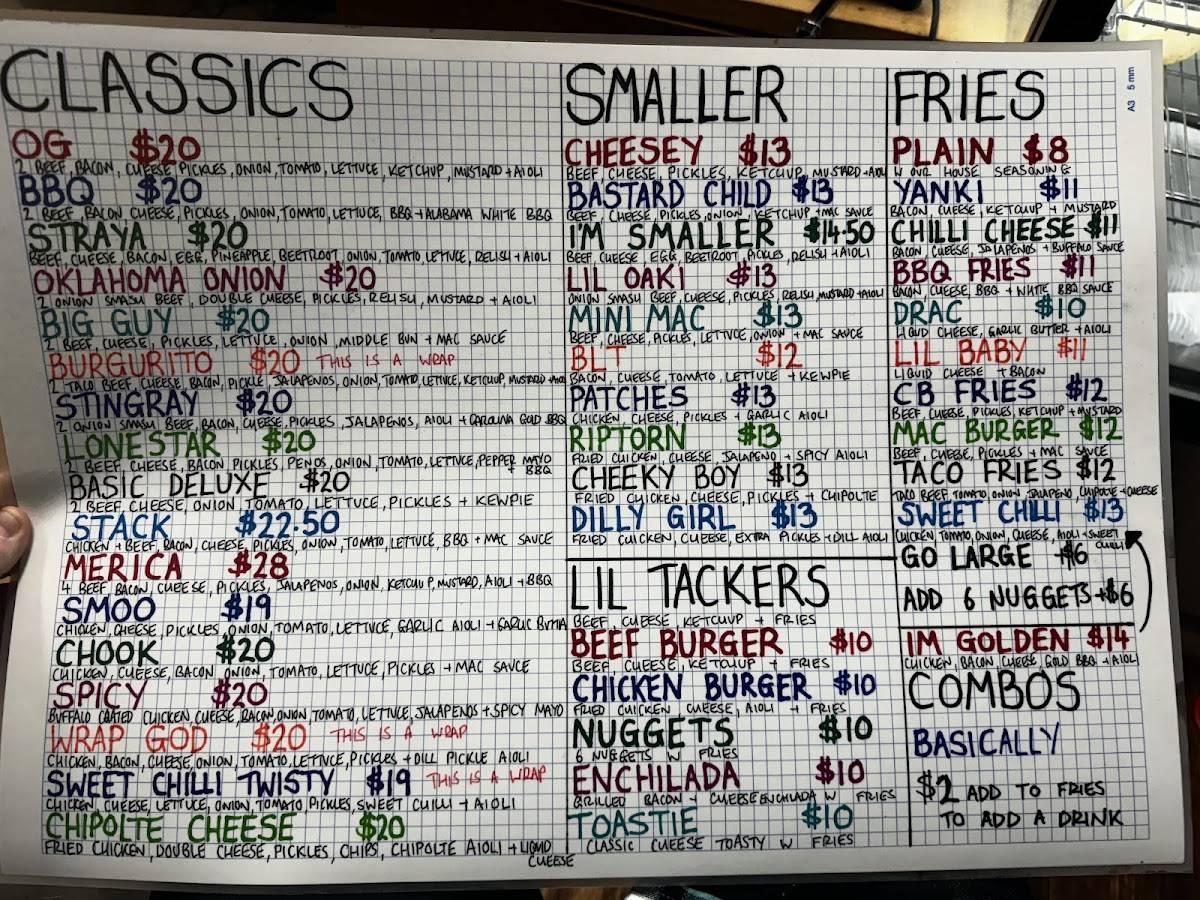 CLASSICS
OG $20
2 BEEF, BACON, CHEESE, PICKLES, ONION, TOMATO, LETTUCE, KETCHUP, MUSTARD + AIOLI
BBQ $20
2 BEEF, BACON, CHEESE, PICKLES, ONION, TOMATO, LETTUCE, BBQ + ALABAMA WHITE BBQ
STRAYA $20
BEEF, CHEESE, BACON, EGG, PINEAPPLE, BEETROOT, ONION, TOMATO, LETTUCE, RELISH + AIOLI
OKLAHOMA ONION $20
2 ONION SMASH BEEF, DOUBLE CHEESE, PICKLES, RELISH, MUSTARD + AIOLI
BIG GUY $20
2 BEEF, CHEESE, PICKLES, LETTUCE, ONION, MIDDLE BUN + MAC SAUCE
BURGURITO $20 THIS IS A WRAP
2 TACO BEEF, CHEESE, BACON, PICKLE, JALAPENOS, ONION, TOMATO, LETTUCE, KETCHUP, MUSTARD + AIOLI
STINGRAY $20
2 ONION SMASH BEEF, BACON, CHEESE, PICKLES, JALAPENOS, AIOLI + CAROLINA GOLD BBQ
LONESTAR $20
2 BEEF, CHEESE, BACON, PICKLES, PENOS, ONION, TOMATO, LETTUCE, PEPPER MAYO
+ BBQ
BASIC DELUXE $20
2 BEEF, CHEESE, ONION TOMATO, LETTUCE, PICKLES + KEWPIE
STACK $22.50
CHICKEN + BEEF, BACON, CHEESE, PICKLES, ONION, TOMATO, LETTUCE, BBQ + MAC SAUCE
MERICA $28
4 BEEF, BACON, CHEESE, PICKLES, JALAPENOS, ONION, KETCHUP, MUSTARD, AIOLI + BBQ
SMOO $19
CHICKEN, CHEESE, PICKLES, ONION, TOMATO, LETTUCE, GARLIC AIOLI + GARLIC BUTTA
CHOOK $20
CHICKEN, CHEESE, BACON ONION, TOMATO, LETTUCE, PICKLES + MAC SAUCE
SPICY $20
BUFFALO COATED CHICKEN, CHEESE, BACON, ONION, TOMATO, LETTUCE, JALAPENOS + SPICY MAYO
WRAP GOD $20 THIS IS A WRAP
CHICKEN, BACON, CHEESE, ONION, TOMATO, LETTUCE, PICKLES + DILL PICKLE AIOLI
SWEET CHILLI TWISTY $19 THIS IS A WRAP
CHICKEN, CHEESE, LETTUCE, ONION, TOMATO, PICKLES, SWEET CHILLI + AIOLI
CHIPOLTE CHEESE $20
FRIED CHICKEN, DOUBLE CHEESE, PICKLES, CHIPS, CHIPOLTE AIOLI + LIQUID
CHEESE
SMALLER
CHEESEY $13
BEEF, CHEESE, PICKLES, KETCHUP, MUSTARD + AIOLI
BASTARD CHILD $13
BEEF, CHEESE, PICKLES, ONION, KETCHUP + MAC SAUCE
I'M SMALLER $14.50
BEEF, CHEESE, EGG, BEETROOT, PICKLES, RELISH + AIOLI
LIL OAKI $13
ONION SMASH BEEF, CHEESE, PICKLES, RELISH, MUSTARD + AIOLI
MINI MAC $13
BEEF, CHEESE, PICKLES, LETTUCE, ONION + MAC SAUCE
BLT $12
BACON, CHEESE, TOMATO, LETTUCE + KEWPIE
PATCHES $13
CHICKEN, CHEESE, PICKLES + GARLIC AIOLI
RIPTORN $13
FRIED CHICKEN, CHEESE, JALAPENO + SPICY AIOLI
CHEEKY BOY $13
FRIED CHICKEN, CHEESE, PICKLES + CHIPOLTE
DILLY GIRL $13
FRIED CHICKEN, CHEESE, EXTRA PICKLES + DILL AIOLI
LIL TACKERS
BEEF, CHEESE, KETCHUP + FRIES
BEEF BURGER $10
BEEF, CHEESE, KETCHUP + FRIES
CHICKEN BURGER $10
FRIED CHICKEN, CHEESE, AIOLI + FRIES
NUGGETS $10
6 NUGGETS W FRIES
ENCHILADA $10
GRILLED BACON + CHEESE ENCHILADA W FRIES
TOASTIE $10
CLASSIC CHEESE TOASTY W FRIES
FRIES
PLAIN $8
W OUR HOUSE SEASONING
YANKI $11
BACON, CHEESE, KETCHUP + MUSTARD
CHILLI CHEESE $11
BACON CHEESE, JALAPENOS + BUFFALO SAUCE
BBQ FRIES $11
BACON CHEESE, BBQ + WHITE BBQ SAUCE
DRAC $10
LIQUID CHEESE, GARLIC BUTTER + AIOLI
LIL BABY $11
LIQUID CHEESE + BACON
CB FRIES $12
BEEF, CHEESE, PICKLES, KETCHUP + MUSTARD
MAC BURGER $12
BEEF, CHEESE, PICKLES + MAC SAUCE
TACO FRIES $12
TACO BEEF, TOMATO, ONION, JALAPENO, CHIPOLTE + CHEESE
SWEET CHILLI $13
CHICKEN, TOMATO, ONION, CHEESE, AIOLI + SWEET
CHILLI
GO LARGE +$6
ADD 6 NUGGETS +$6
IM GOLDEN $14
CHICKEN, BACON, CHEESE, GOLD BBQ + AIOLI
COMBOS
BASICALLY
$2 ADD TO FRIES
TO ADD A DRINK
A3 5 mm